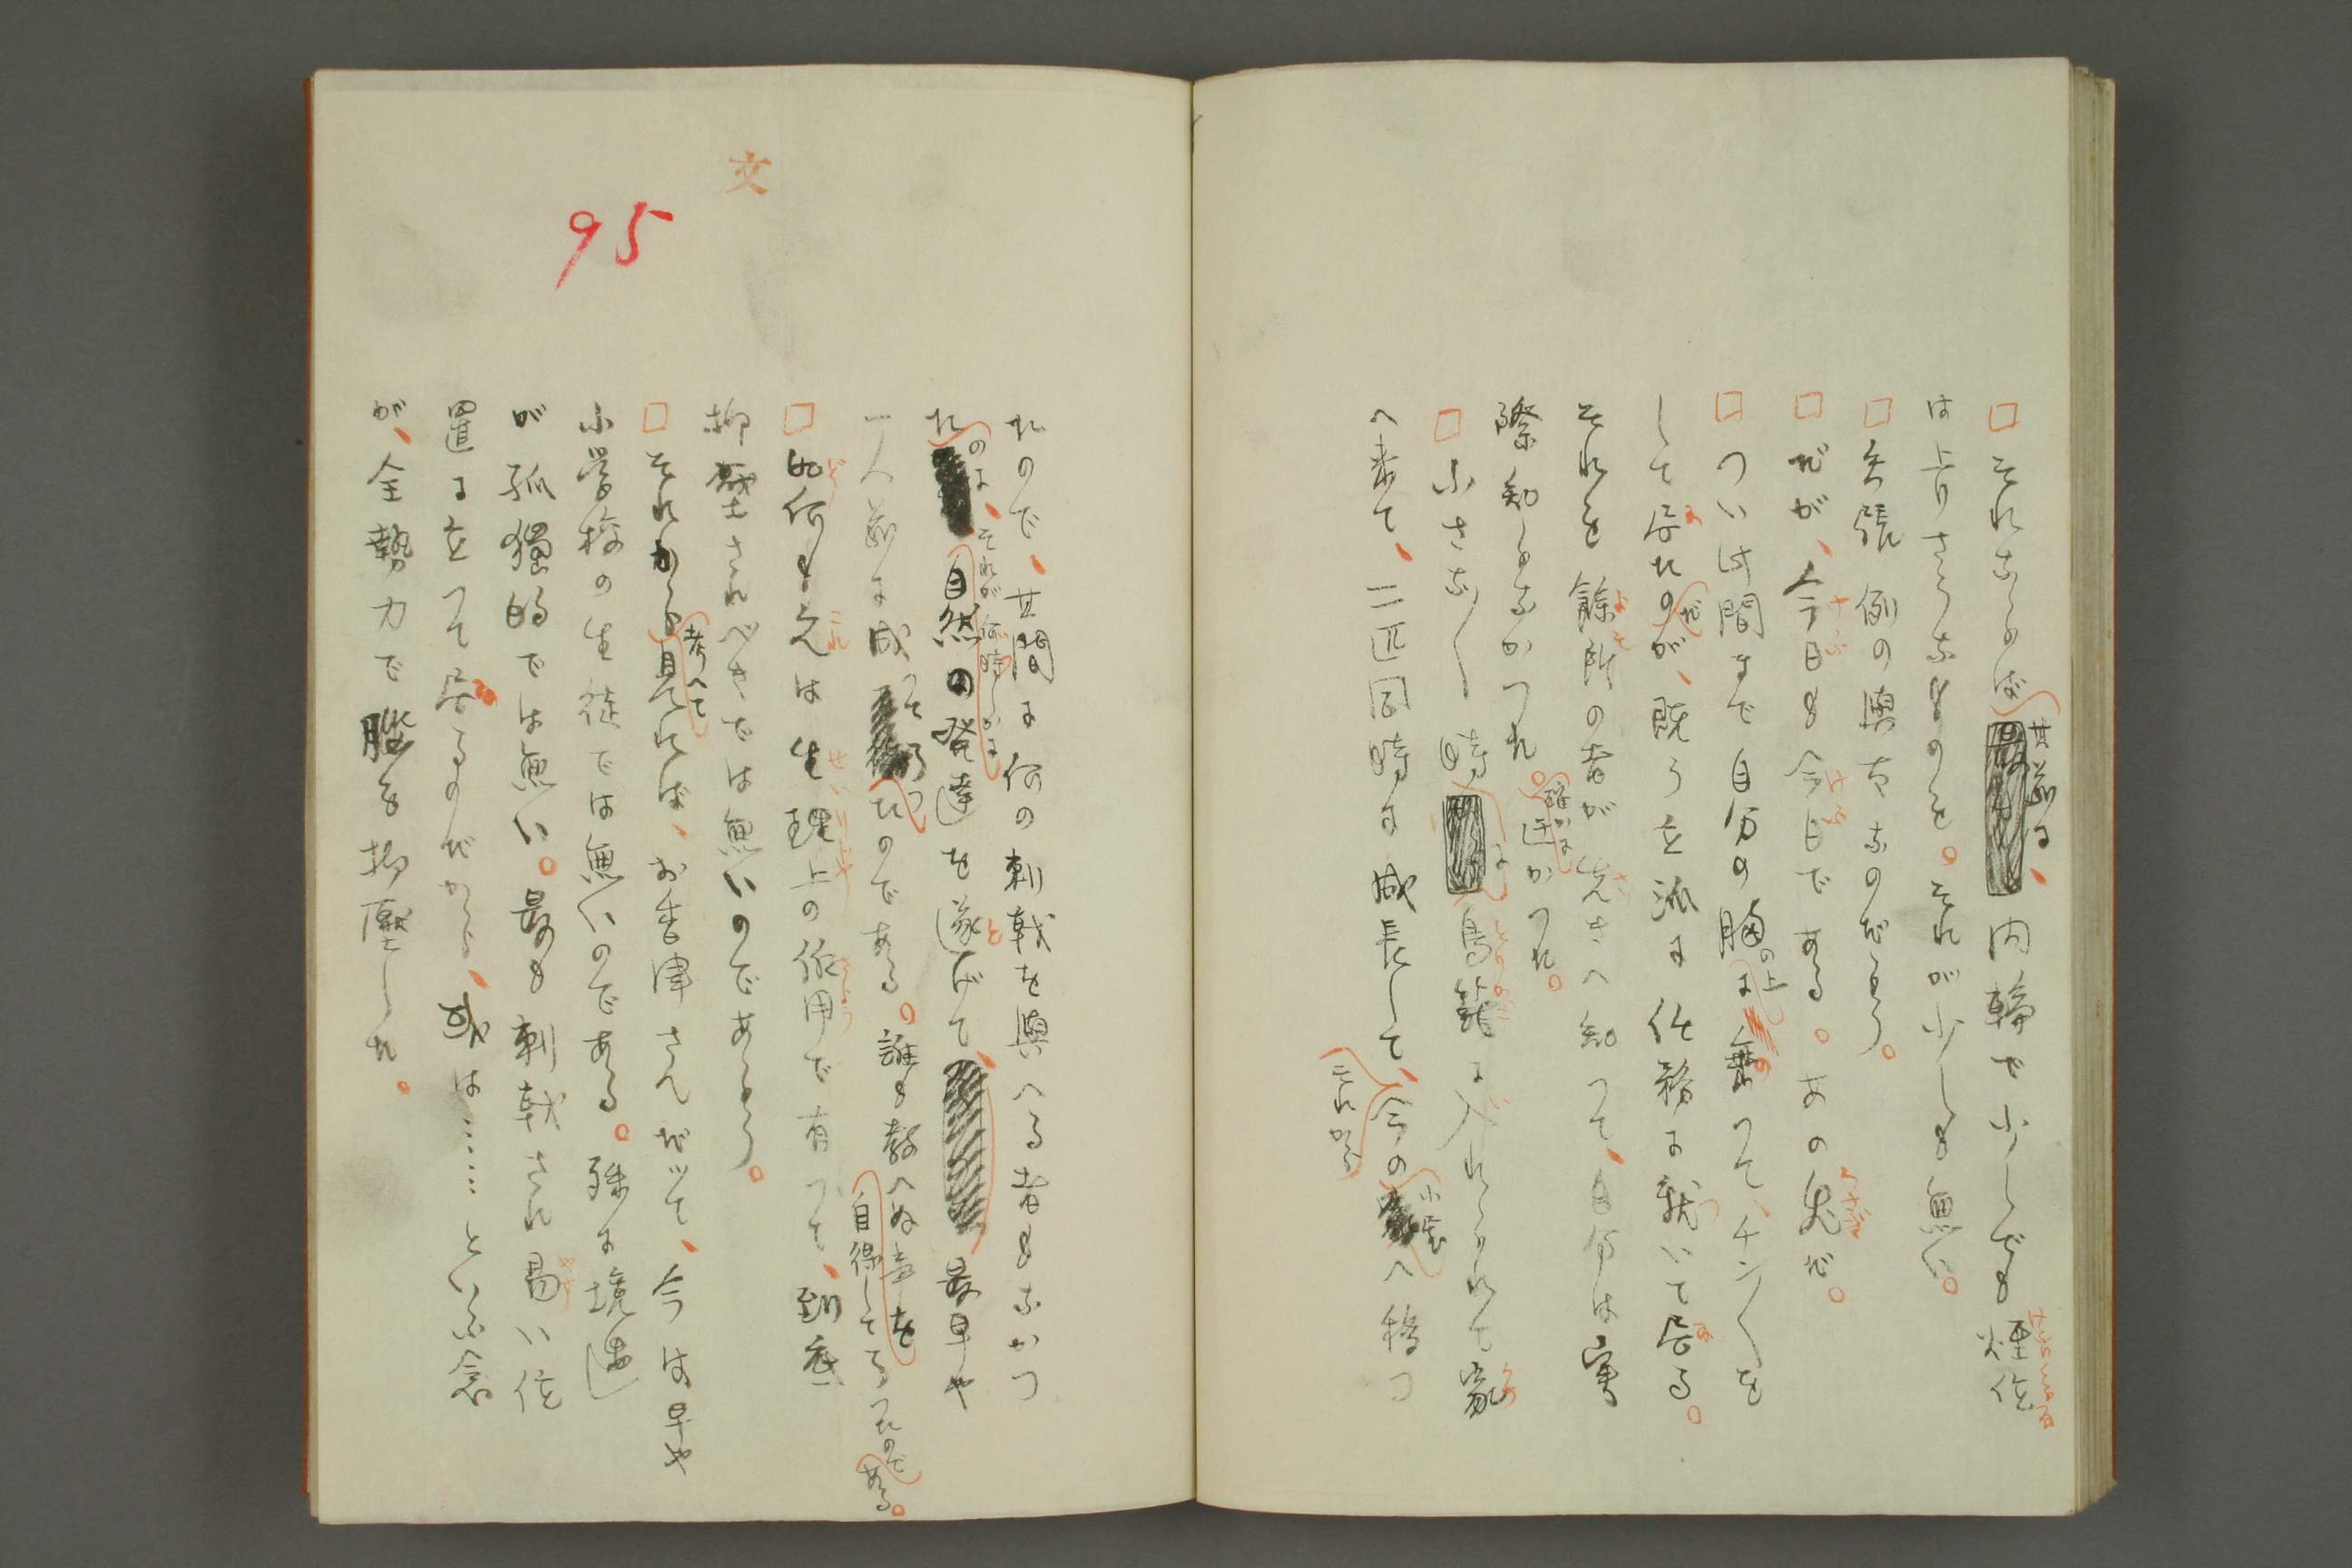 □それならば其前は、内輪で少しでも煙位
は上りさうなものを。それが少しも無い。
□矢張例の輿太なのだらう。
□だが、今日も今日である。あの兒だ。
□つい此間まで自分の膓の上に乗つて、チン〳〵を
して居たのだが、既う立派に任務に就いて居る。
それを餘所の者が先きへ知つて、自分は實
際知らなかつた。確かに迂かつた。
□小さな〳〵時に鳥籠に入れられて家
へ来て、二匹同時に成長して、それから今の小屋へ移つ
たので、其間に何の刺戟を與へる者もなかつ
たのに、それが何時しかに自然の発達を遂げて、最早や
一人前に成つて了つたのである。誰も教へぬ事を自得して了つたのである。
□如何も之は生理上の作用で有つて、到底
抑壓されべきでは無いのであらう。
□それから考へて見れば、お香津さんだッて、今は早や
小學校の生徒では無いのである。殊に境遇
が孤獨的では無い。最も刺戟され易い位
置に立つて居るのだから、或は……といふ念
が、全勢力で脳を抑壓した。
文
95